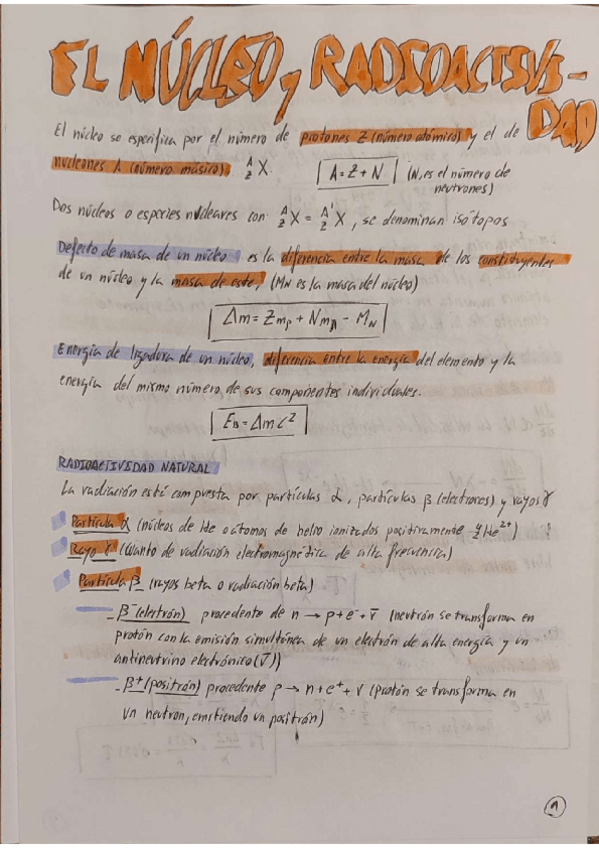 EL NÚCLEO y RADIOACTIVI-
DAD
El núcleo se especifica por el número de protones Z (número atómico) y el de
nucleones A (número másico) ᴬ_Z X. A = Z + N (N, es el número de
neutrones)
Dos núcleos o especies nucleares con ᴬ_Z X = ᴬ'_Z X, se denominan isótopos
Defecto de masa de un núcleo es la diferencia entre la masa de los constituyentes
de un núcleo y la masa de este, (M_N es la masa del núcleo)
Δm = Z m_p + N m_n - M_N
Energía de ligadura de un núcleo, diferencia entre la energía del elemento y la
energía del mismo número de sus componentes individuales.
E_B = Δm c²
RADIOACTIVIDAD NATURAL
La radiación está compuesta por partículas α, partículas β (electrones) y rayos γ
Partícula α (núcleos de He o átomos de helio ionizados positivamente ⁴₂He²⁺)
Rayo γ (Cuanto de radiación electromagnética de alta frecuencia)
Partícula β (rayos beta o radiación beta)
- β⁻ (electrón) procedente de n → p + e⁻ + ν̅ (neutrón se transforma en
protón con la emisión simultánea de un electrón de alta energía y un
antineutrino electrónico (ν̅))
- β⁺ (positrón) procedente p → n + e⁺ + ν (protón se transforma en
un neutron, emitiendo un positrón)
1